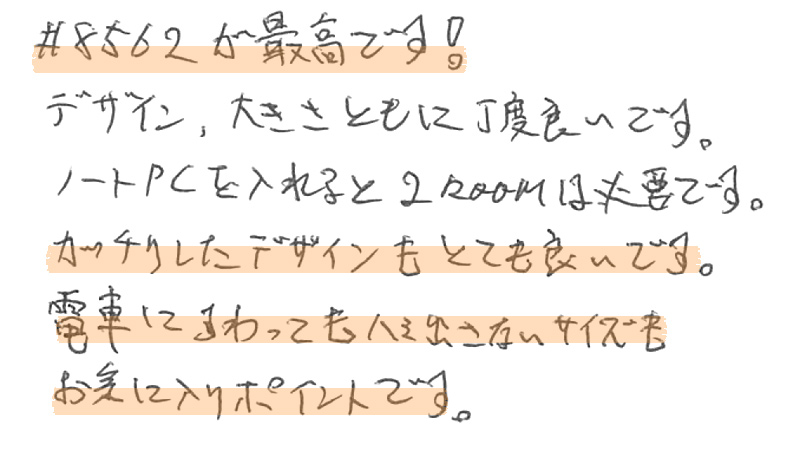 #8562が最高です!
デザイン,大きさともに丁度良いです。
ノートPCを入れると2ROOMは必要です。
カッチリしたデザインもとても良いです。
電車にすわってもハミ出さないサイズも
お気に入りポイントです。